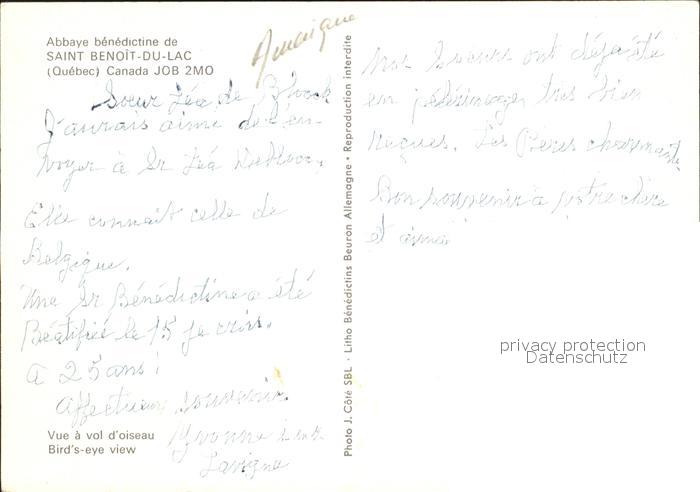 Abbaye bénédictine de
SAINT BENOÎT-DU-LAC
(Québec) Canada JOB 2MO
Amérique
Soeur Léa de Block
J'aurais aimé de l'en-
voyer à Sr Léa Deblock,
Elle connait celle de
Belgique.
Une Sr Bénédictine a été
Béatifiée le 15 je crois.
à 25 ans!
Affectueux souvenir
Yvonne
Lavigne
Vue à vol d'oiseau
Bird's-eye view
Photo J. Côté SBL - Litho Bénédictins Beuron Allemagne • Reproduction interdite
Nos Soeurs ont déjà été
en pélérinage, très bien
reçues. Les Pères charmants
Bon souvenir à votre chère
et aimée
privacy protection
Datenschutz